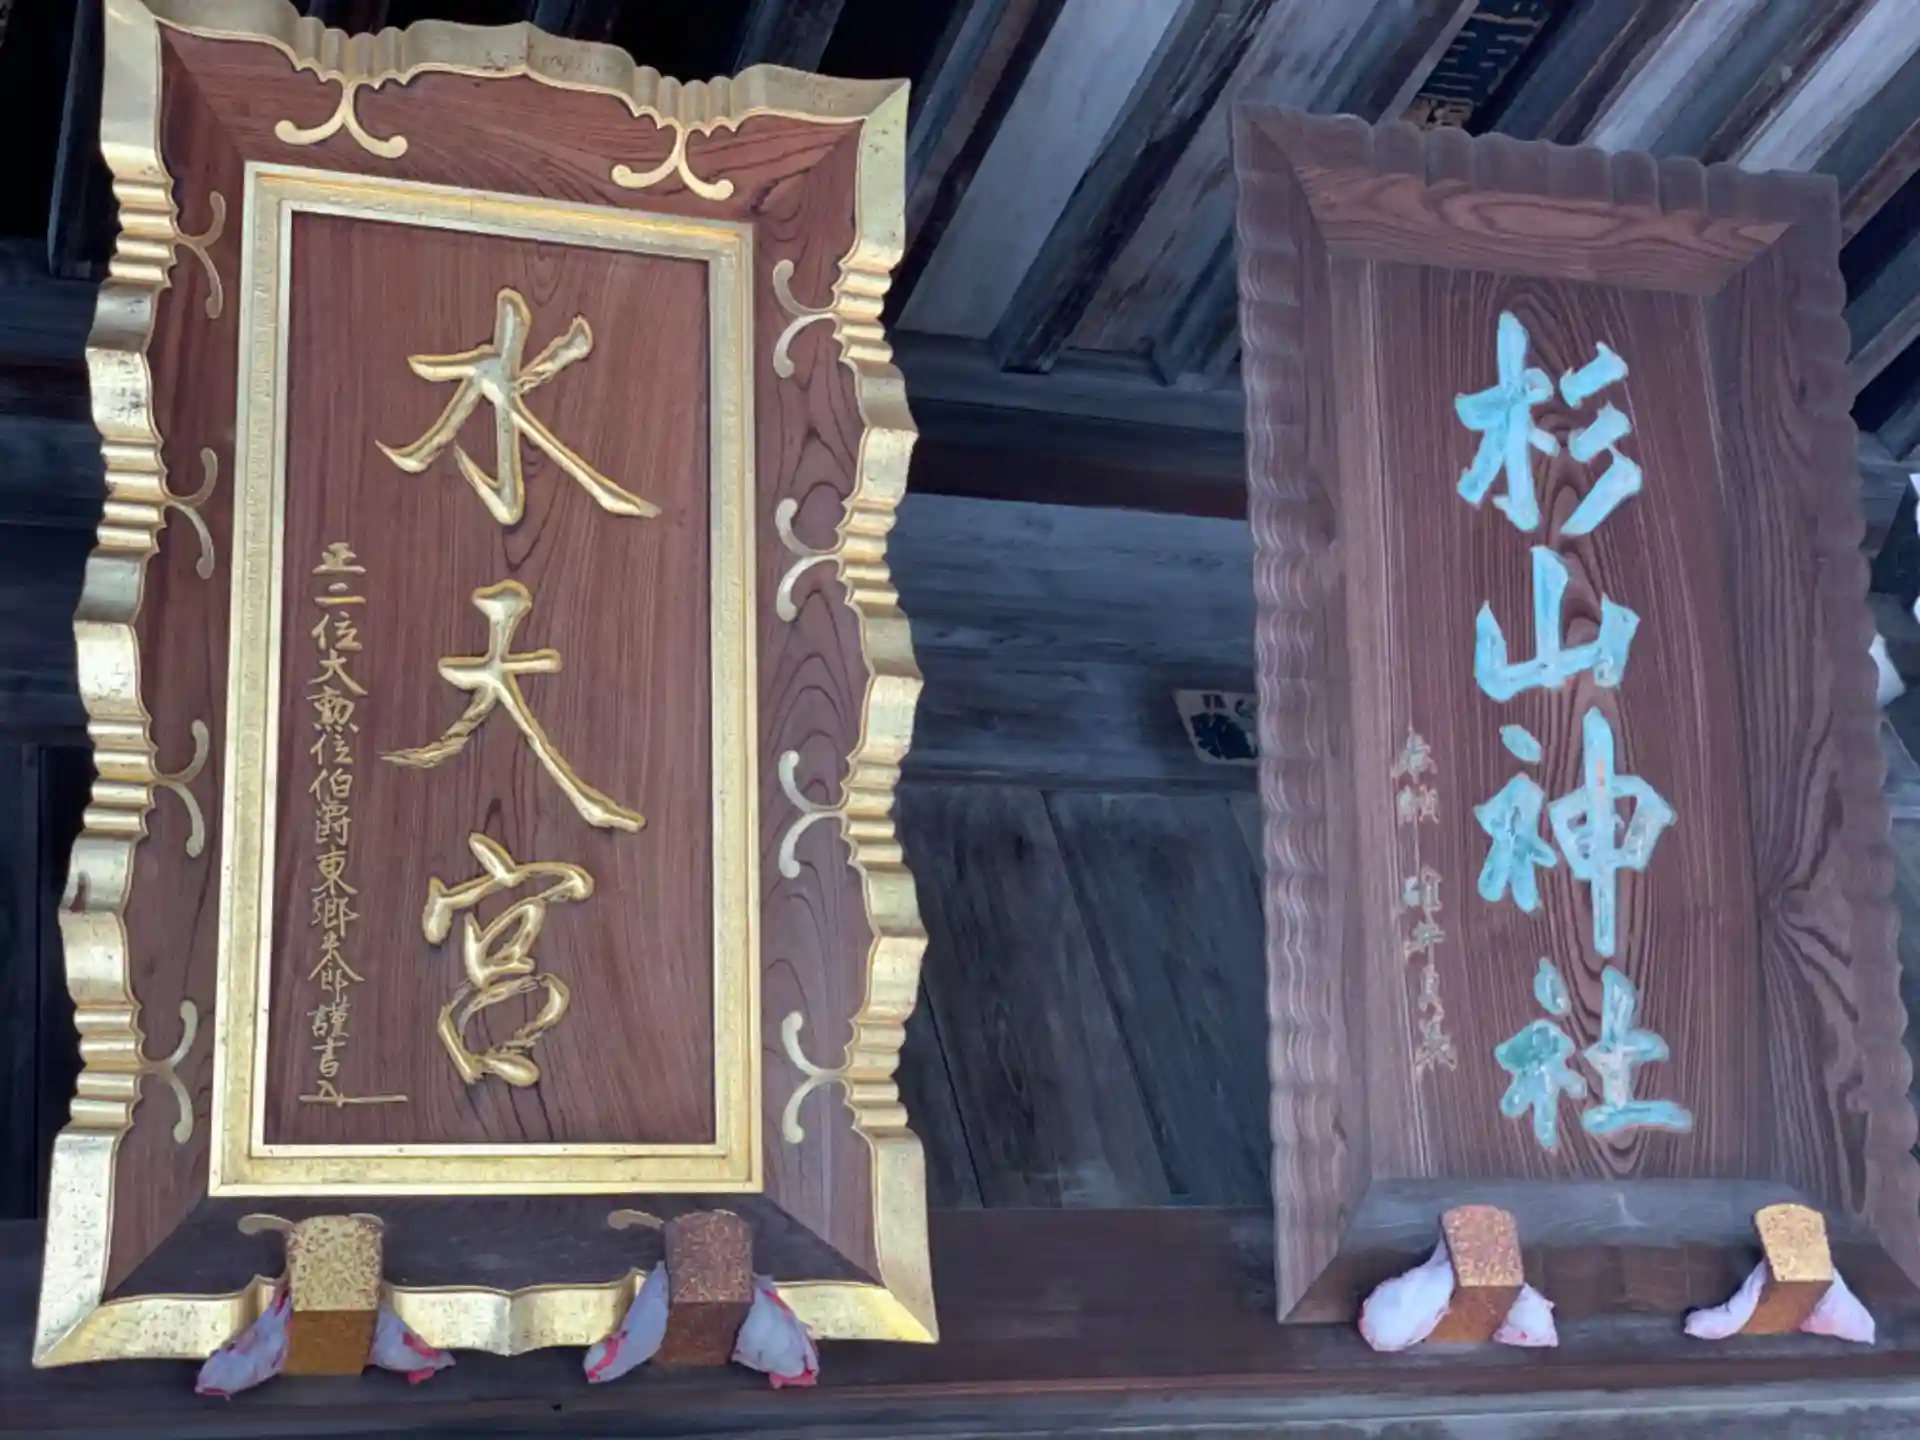 杉山神社
水天宮
正二位大勲位伯爵東郷平八郎謹書